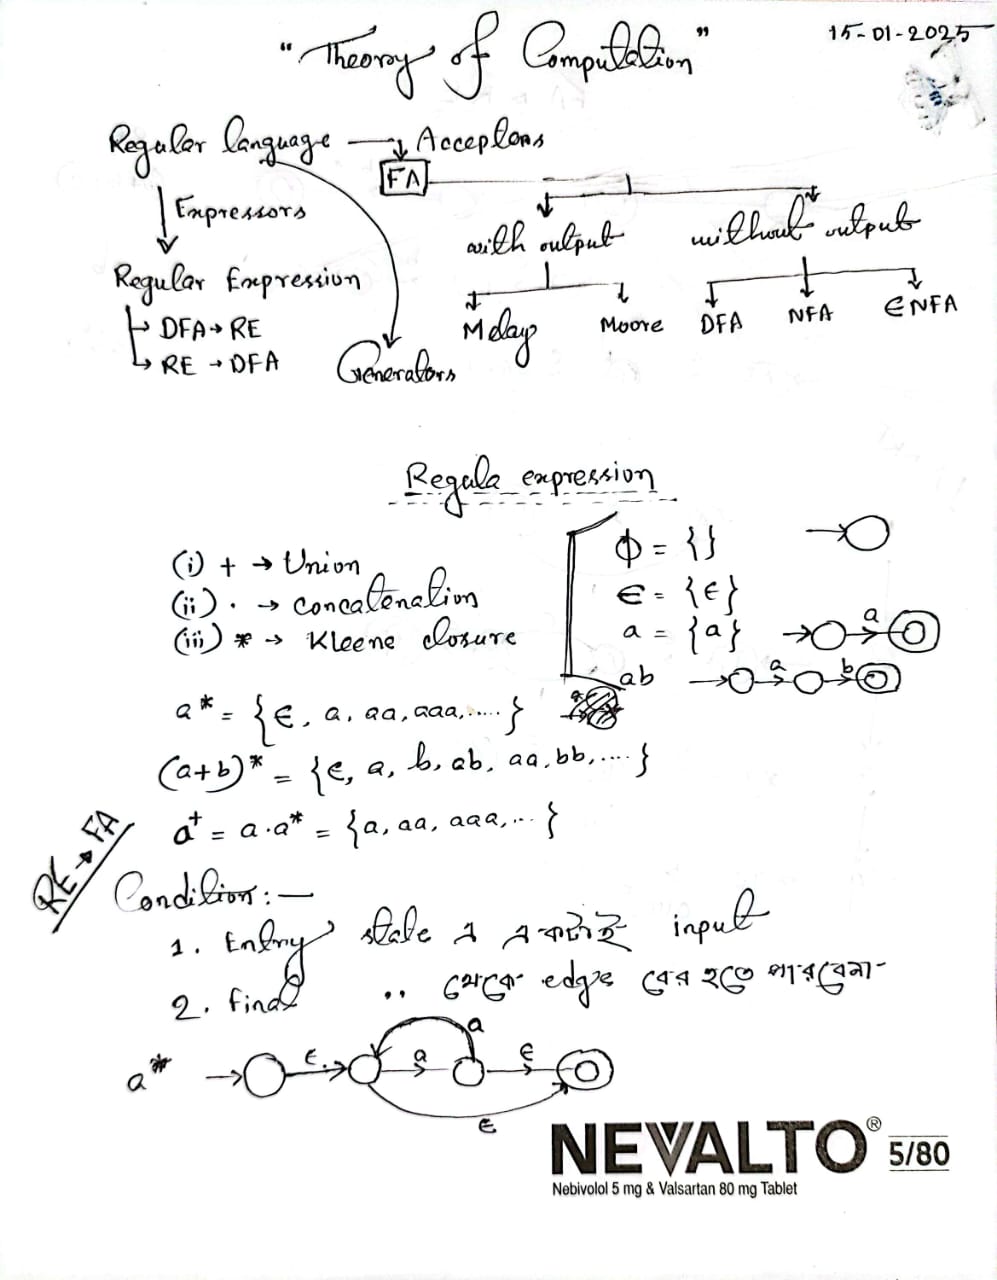 "Theory of Computation"
15-01-2025
Regular language → Acceptors
FA
Expressors
with output
without output
Regular Expression
DFA → RE
RE → DFA
Generators
Melay
Moore
DFA
NFA
ENFA
Regula expression
(i) + → Union
(ii) . → concatenation
(iii) * → Kleene closure
ϕ = {}
ϵ = {ϵ}
a = {a}
a
ab
a b
a* = {ϵ, a, aa, aaa,.....}
(a+b)* = {ϵ, a, b, ab, aa, bb,....}
a⁺ = a.a* = {a, aa, aaa,...}
RE → FA
Condition:—
1. Entry state এ একটাই input
2. final .. থেকে edge বের হতে পারবেনা-
a*
ϵ a a ϵ
ϵ
NEVALTO® 5/80
Nebivolol 5 mg & Valsartan 80 mg Tablet